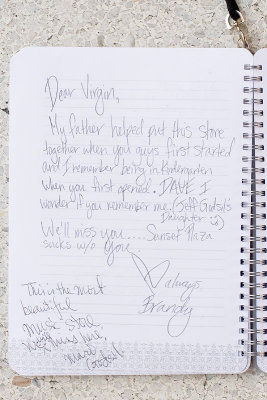 Dear Virgin,
My father helped put this store
together when you guys first started
and I remember being in Kindergarten
when you first opened. DAVE I
wonder if you remember me. (Jeff
Daughter
We'll miss you.... Sunset Plaza
sucks w/o you
always,
Brandy
This is the most
beautiful
music store,